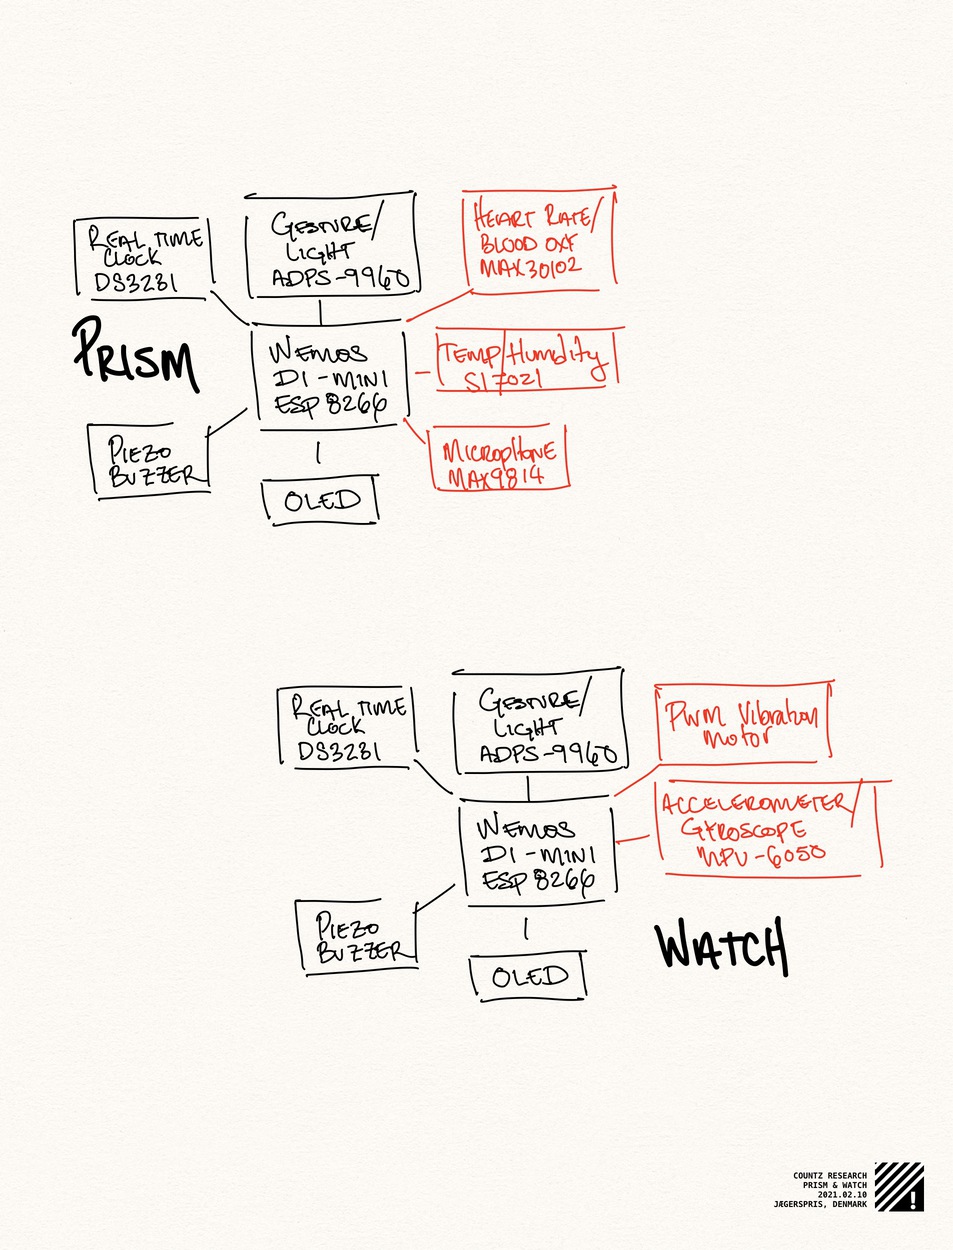 REAL TIME
CLOCK
DS3231
GESTURE/
LIGHT
ADPS-9960
HEART RATE/
BLOOD OXY
MAX30102
PRISM
WEMOS
D1-MINI
ESP 8266
TEMP/Humdity
SI7021
PIEZO
BUZZER
OLED
MICROPHONE
MAX9814
REAL TIME
CLOCK
DS3231
GESTURE/
LIGHT
ADPS-9960
PWM Vibration
motor
WEMOS
D1-MINI
ESP 8266
ACCELEROMETER/
GYROSCOPE
MPU-6050
PIEZO
BUZZER
OLED
WATCH
COUNTZ RESEARCH
PRISM & WATCH
2021.02.10
JÆGERSPRIS, DENMARK
!